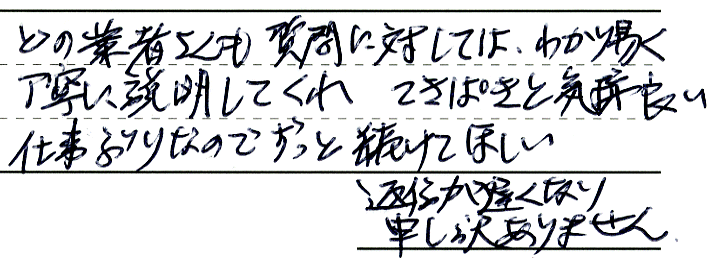 どの業者さんも質問に対しては、わかり易く
丁寧に説明してくれ てきぱきと気持良い
仕事ぶりなのでずっと続けてほしい
返信が遅くなり
申し訳ありません.